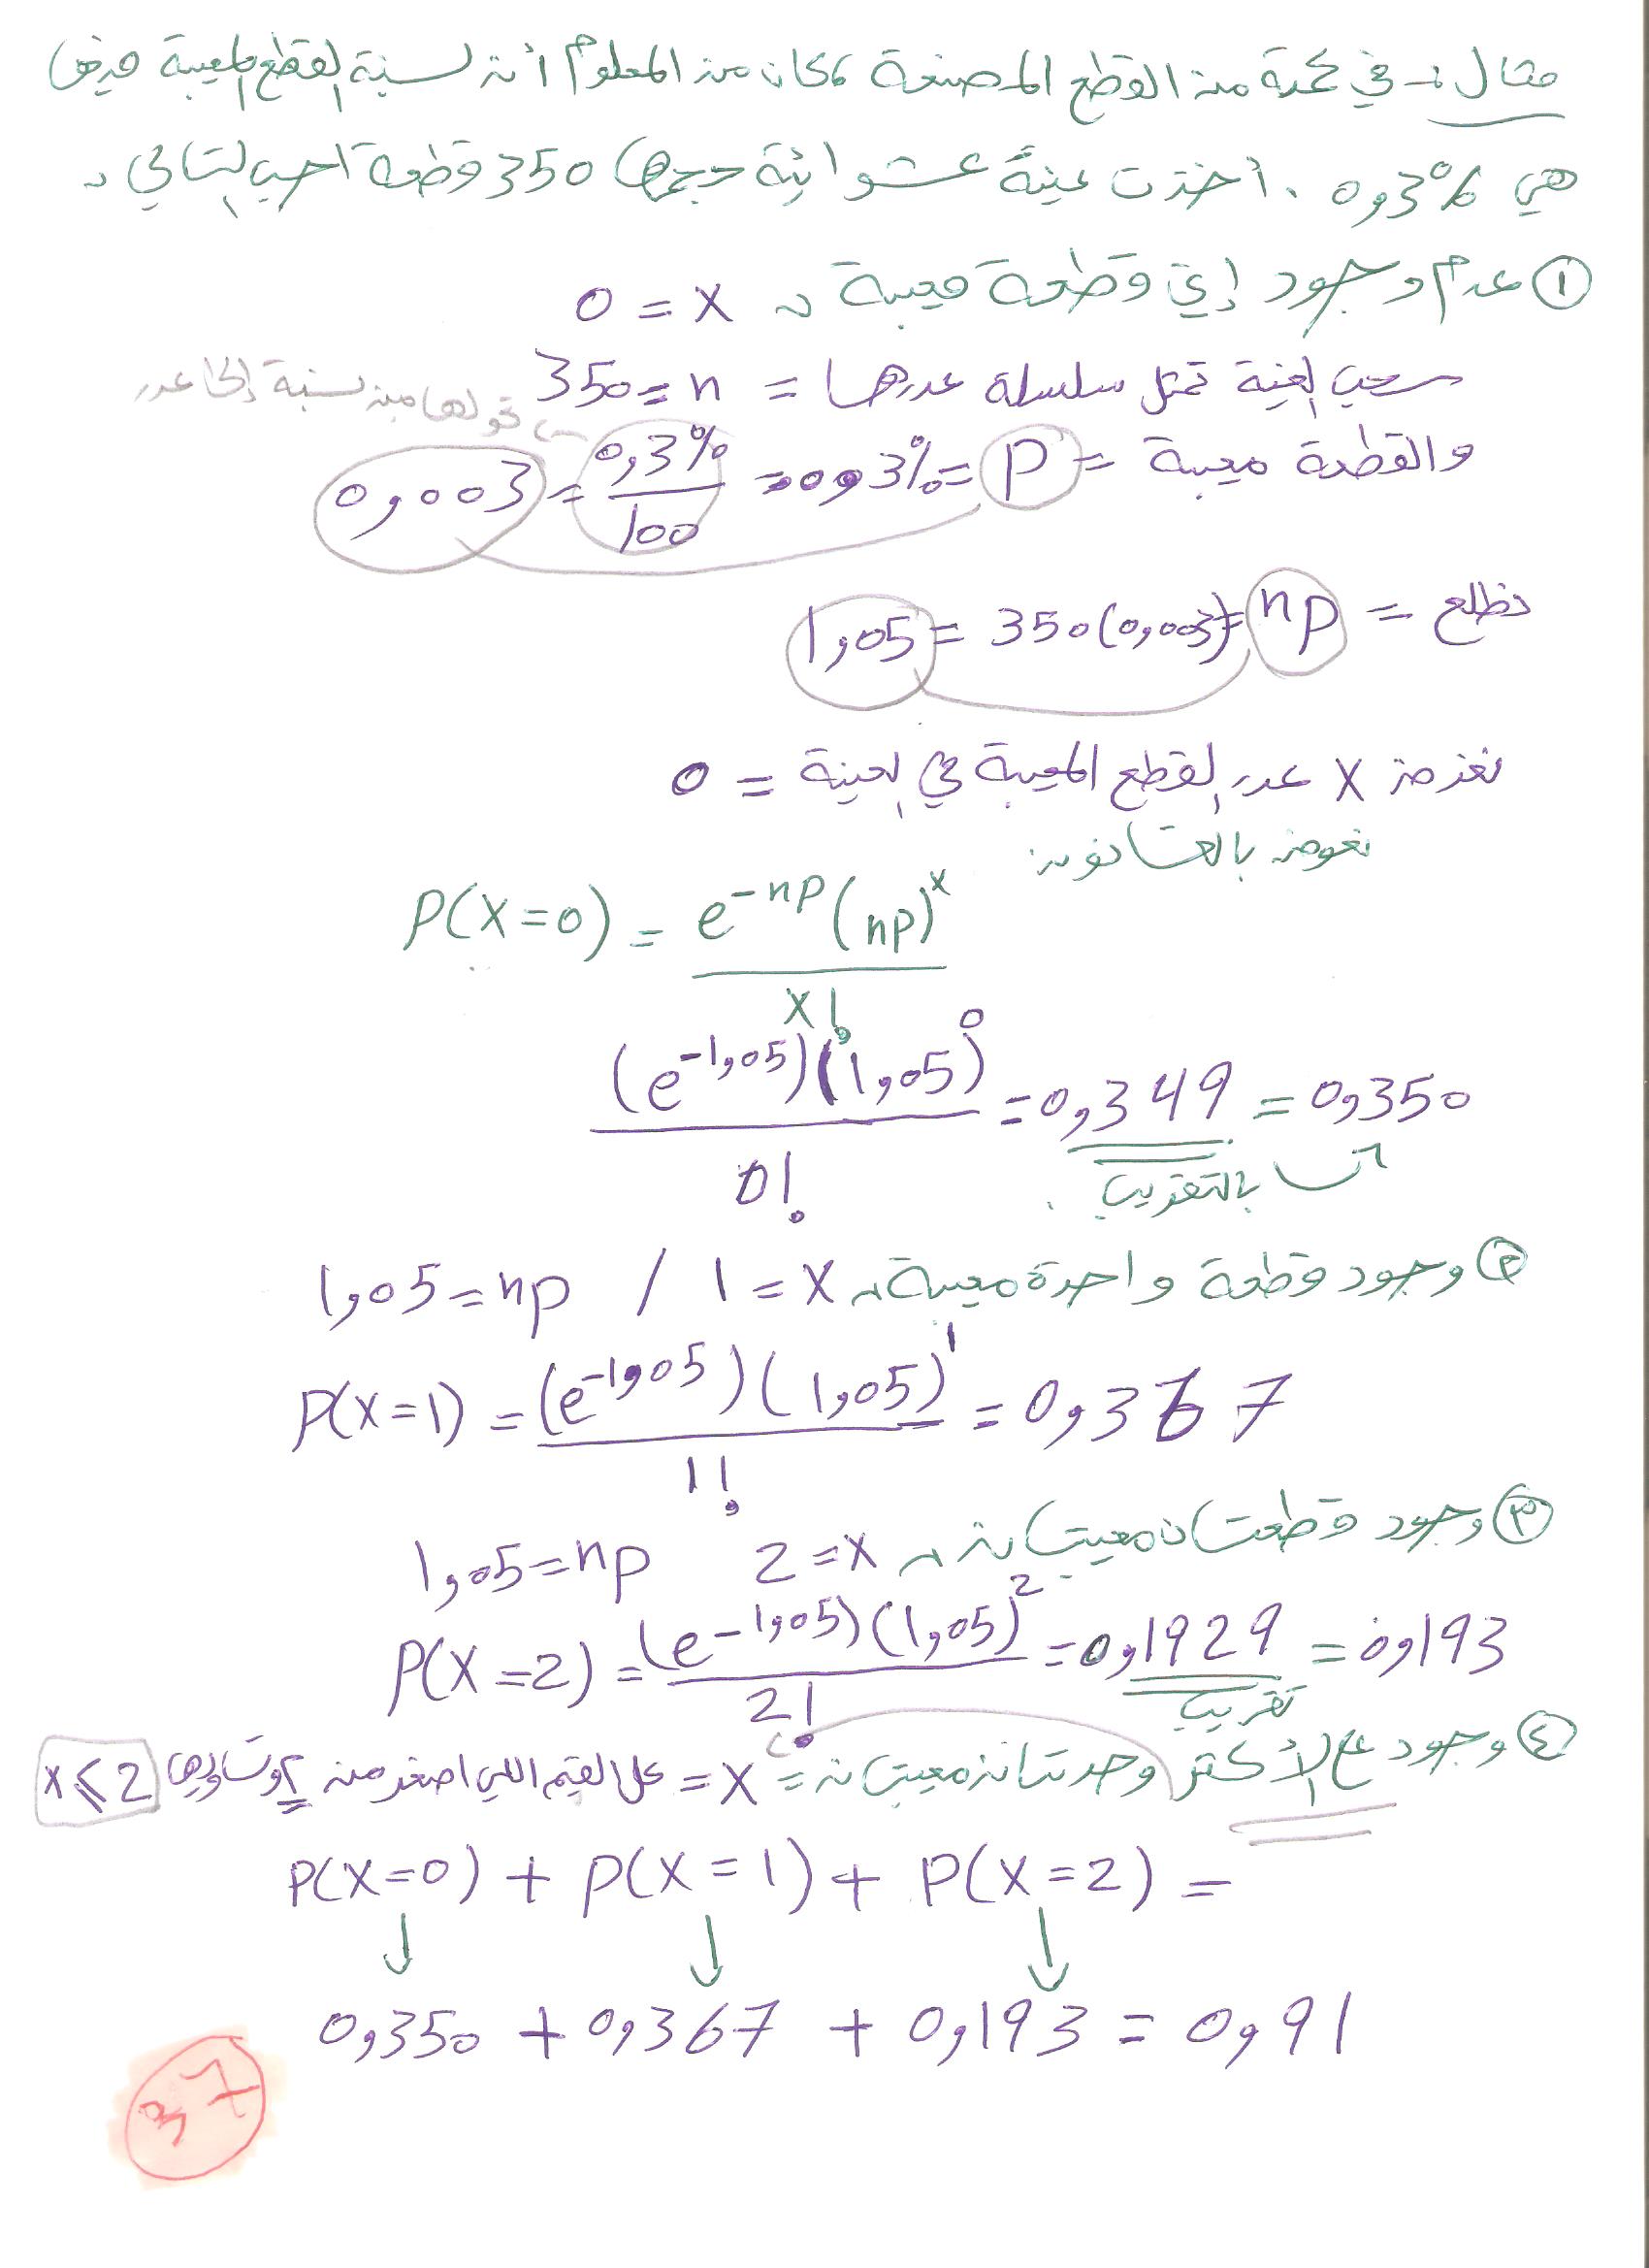 مثال :- في كمية من القطع المصنعة ، كان من المعلوم أن نسبة القطع المعيبة فيها
هي 0,3% . أخذت عينة عشوائية حجمها 350 قطعة احسب التالي :
① عدم وجود إي قطعة معيبة : 0 = X
سحب العينة تمثل سلسلة عددها = 350 = n
نحولها من نسبة إلى عدد
والقطعة معيبة = P = 0,3% = 0,3%/100 = 0,003
نطلع = np = 350(0,003) = 1,05
نفرض X عدد القطع المعيبة في العينة = 0
نعوض بالقانون:
P(X=0) = e^-np (np)^x / x!
(e^-1,05)(1,05)^0 / 0! = 0,349 = 0,350
بالتقريب
② وجود قطعة واحدة معيبة : 1 = X / 1,05 = np
P(X=1) = (e^-1,05)(1,05)^1 / 1! = 0,367
③ وجود قطعتان معيبتان : 2 = X 1,05 = np
P(X=2) = (e^-1,05)(1,05)^2 / 2! = 0,1929 = 0,193
تقريب
④ وجود ع الأكثر وحدتان معيبتان = X = كل القيم اللي اصغر من 2 وتساويها x ⩽ 2
P(X=0) + P(X=1) + P(X=2) =
0,350 + 0,367 + 0,193 = 0,91
37